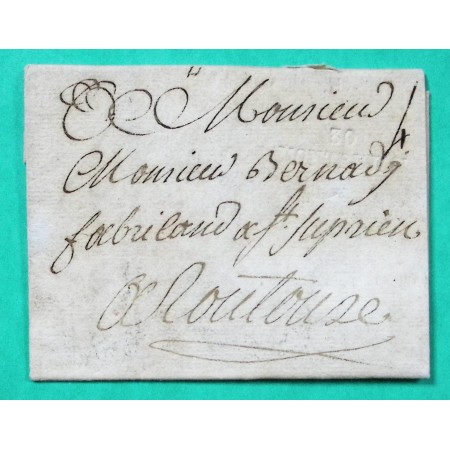 A Monsieur
Monsieur Bernady
fabriland a St Suprien
a Toulouse
30